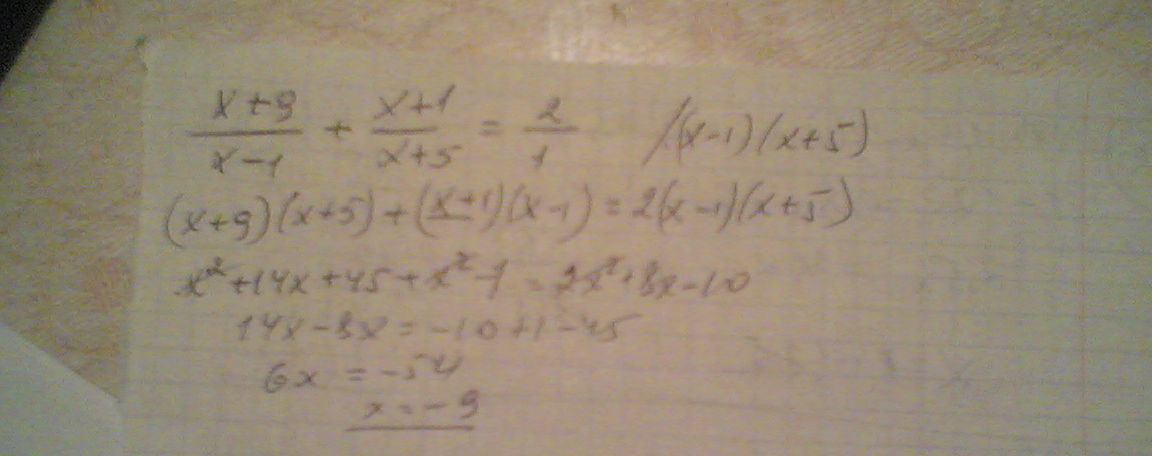 (x+9)/(x-1) + (x+1)/(x+5) = 2/1 /(x-1)(x+5)
(x+9)(x+5)+(x+1)(x-1)=2(x-1)(x+5)
x²+14x+45+x²-1=2x²+8x-10
14x-8x=-10+1-45
6x=-54
x=-9